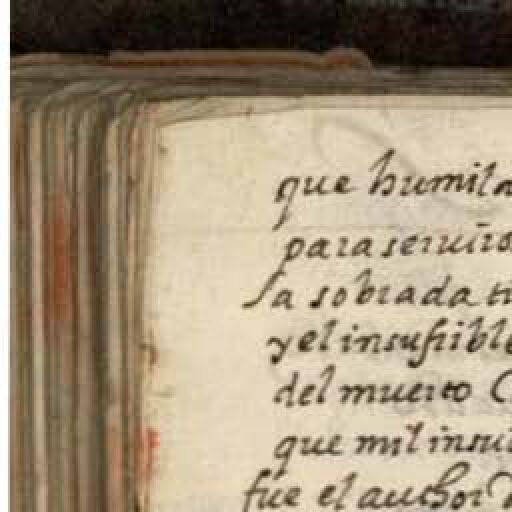 que humil
para seruiros
la sobrada
y el insufrible
del muerto
que mil
fue el author